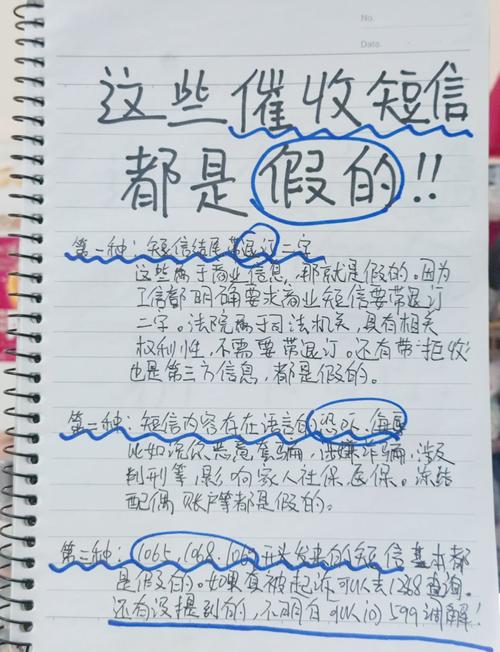 No.
Data.
这些催收短信
都是假的!!
第一种：短信结尾带退订二字
这些属于商业信息，那就是假的。因为
工信部明确要求商业短信要带退订
二字。法院属于司法机关，具有相关
权利性，不需要带退订。还有带拒收
也是第三方信息，都是假的。
第二种：短信内容存在语言的恐吓、侮辱
比如说你恶意套骗，涉嫌诈骗，涉及
判刑等，影响家人社保医保。冻结
配偶账户等都是假的。
第三种：1065、1068、106开头发来的短信基本都
是假的。如果真被起诉可以去12368查询。
还有没提到的，不明白可以问599调解！